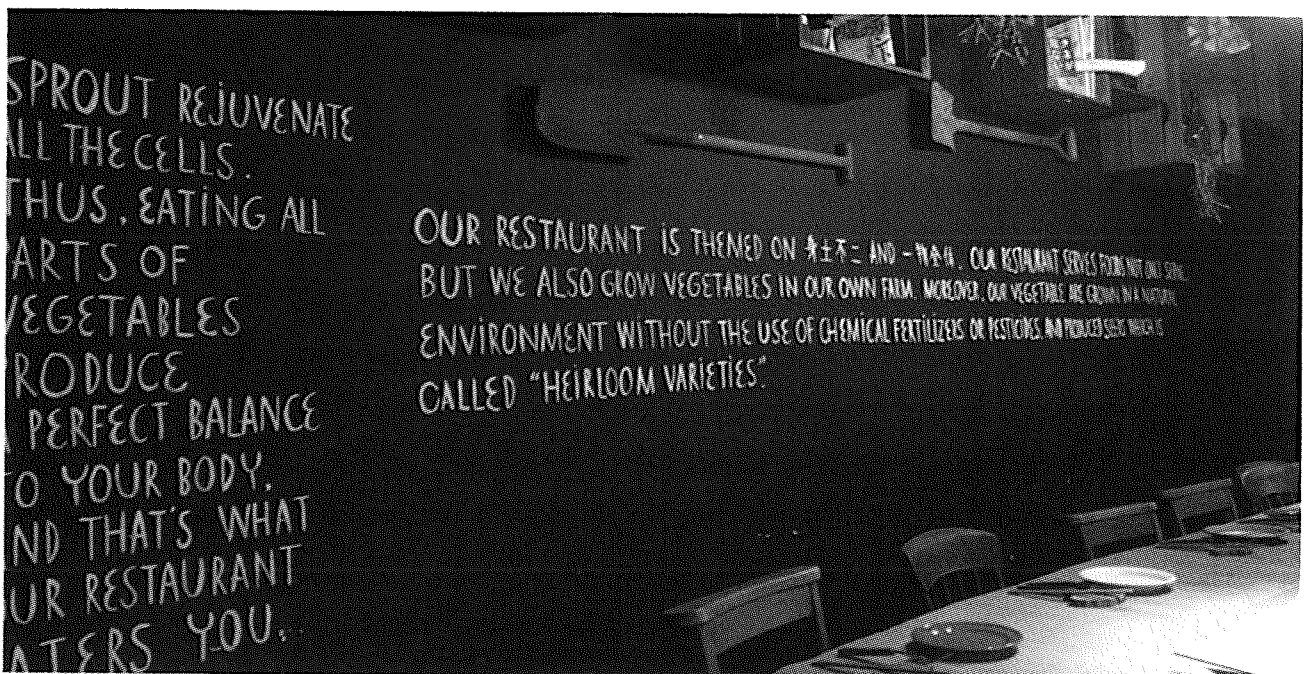 SPROUT REJUVENATE
ALL THE CELLS.
THUS, EATING ALL
PARTS OF
VEGETABLES
PRODUCE
PERFECT BALANCE
TO YOUR BODY.
AND THAT'S WHAT
OUR RESTAURANT
CATERS YOU.
OUR RESTAURANT IS THEMED ON 身土不二 AND 一物全体. OUR RESTAURANT SERVES FOODS NOT ONLY
BUT WE ALSO GROW VEGETABLES IN OUR OWN FARM. MOREOVER, OUR VEGETABLE ARE GROWN IN A NATURAL
ENVIRONMENT WITHOUT THE USE OF CHEMICAL FERTILIZERS OR PESTICIDES, AND PRODUCED SEEDS WHICH IS
CALLED "HEIRLOOM VARIETIES".